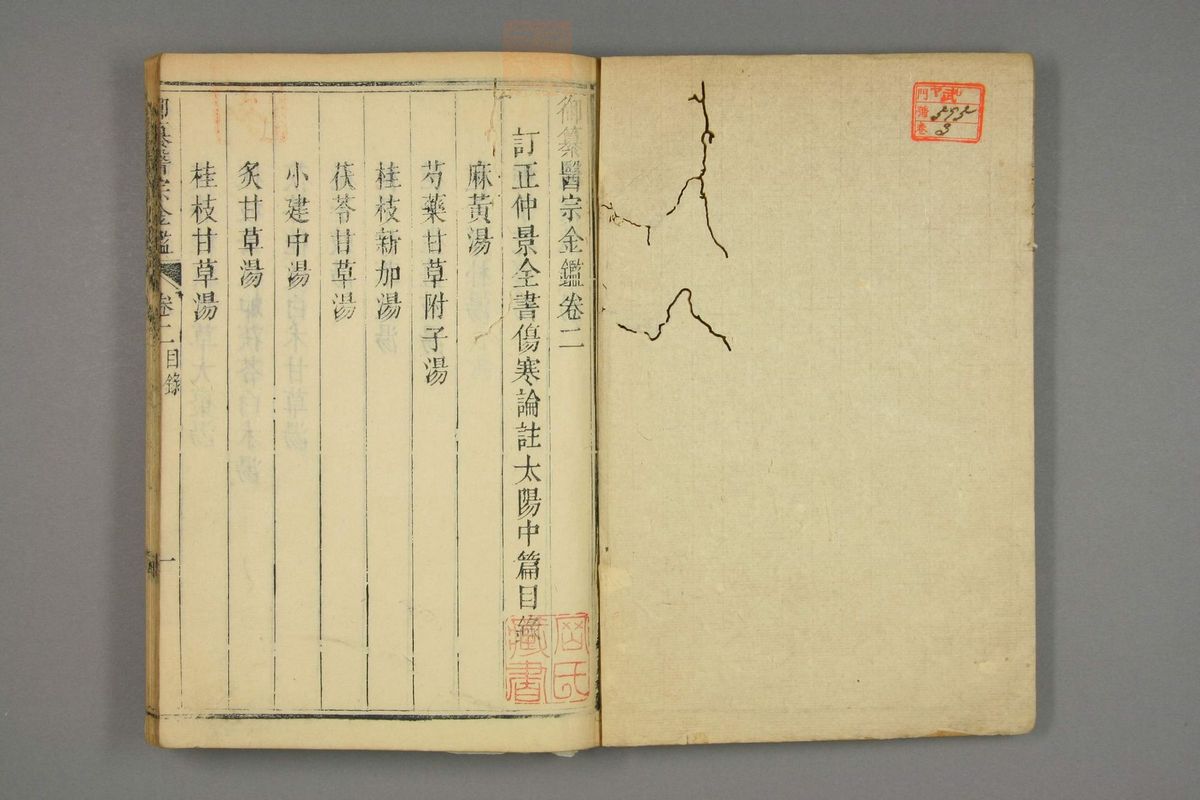 門 武
號 595
卷 3
御纂醫宗金鑑卷二
訂正仲景全書傷寒論註太陽中篇目錄
麻黃湯
芍藥甘草附子湯
桂枝新加湯
茯苓甘草湯
小建中湯
炙甘草湯
桂枝甘草湯
御纂醫宗金鑑
卷二目錄
一
藏書